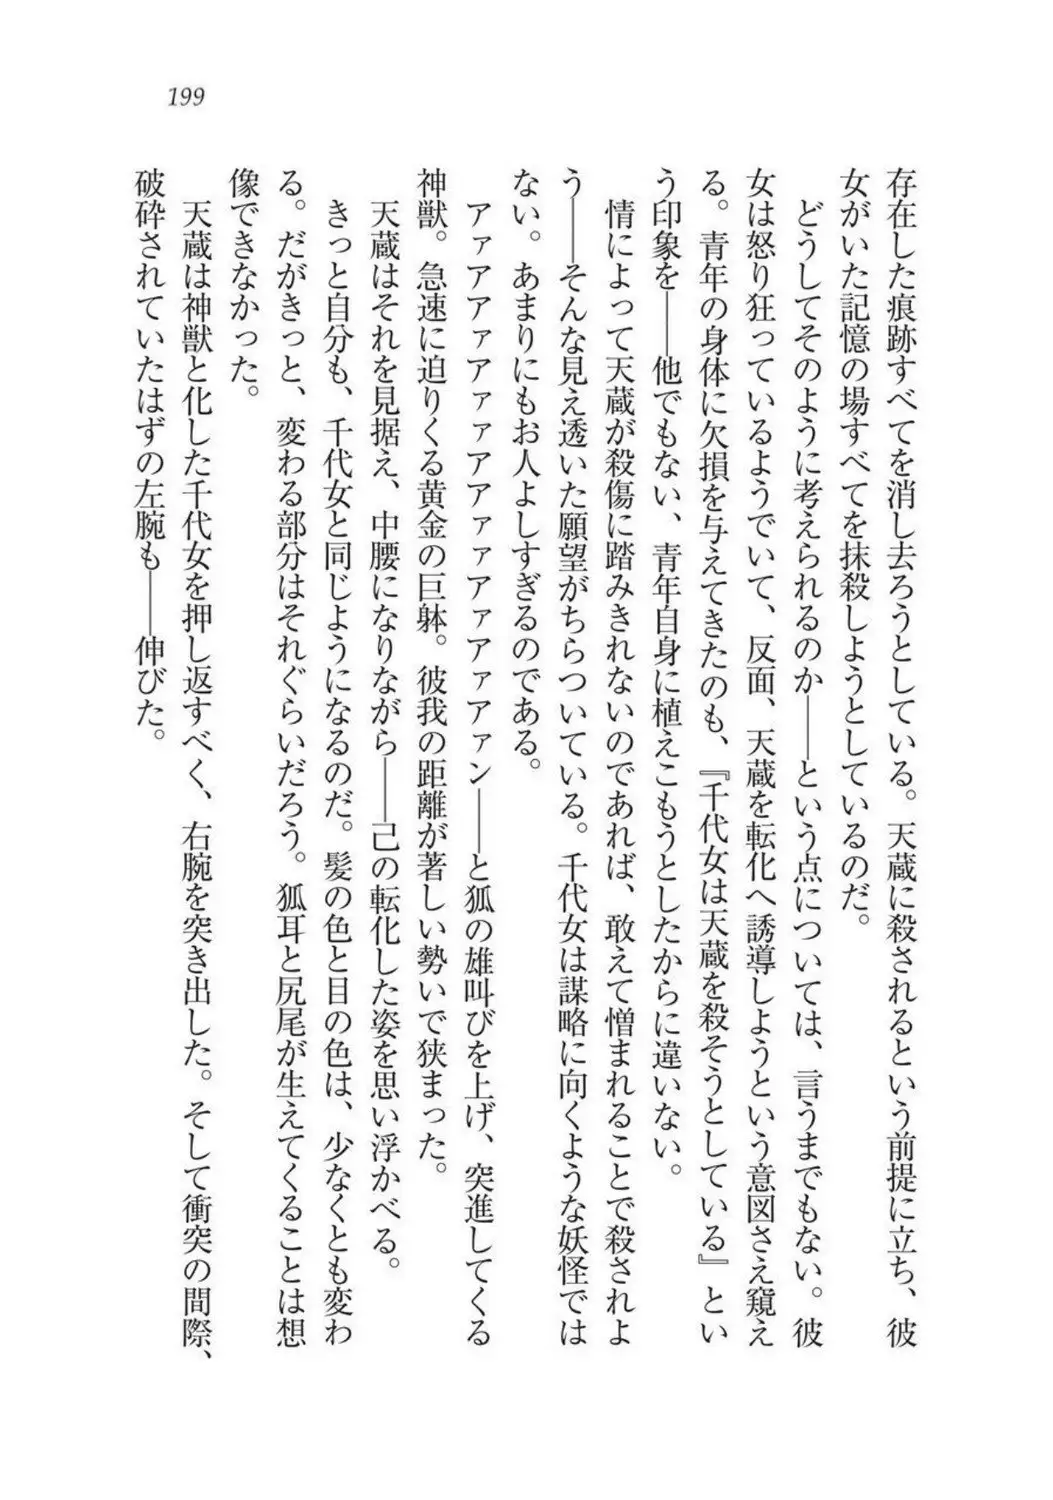 199
存在した痕跡すべてを消し去ろうとしている。天蔵に殺されるという前提に立ち、彼
女がいた記憶の場すべてを抹殺しようとしているのだ。
　どうしてそのように考えられるのか――という点については、言うまでもない。彼
女は怒り狂っているようでいて、反面、天蔵を転化へ誘導しようという意図さえ窺え
る。青年の身体に欠損を与えてきたのも、『千代女は天蔵を殺そうとしている』とい
う印象を――他でもない、青年自身に植えこもうとしたからに違いない。
　情によって天蔵が殺傷に踏みきれないのであれば、敢えて憎まれることで殺されよ
う――そんな見え透いた願望がちらついている。千代女は謀略に向くような妖怪では
ない。あまりにもお人よしすぎるのである。
　アァアアァアァァアアァァアァアァアン――と狐の雄叫びを上げ、突進してくる
神獣。急速に迫りくる黄金の巨躰。彼我の距離が著しい勢いで狭まった。
　天蔵はそれを見据え、中腰になりながら――己の転化した姿を思い浮かべる。
　きっと自分も、千代女と同じようになるのだ。髪の色と目の色は、少なくとも変わ
る。だがきっと、変わる部分はそれぐらいだろう。狐耳と尻尾が生えてくることは想
像できなかった。
　天蔵は神獣と化した千代女を押し返すべく、右腕を突き出した。そして衝突の間際、
破砕されていたはずの左腕も――伸びた。